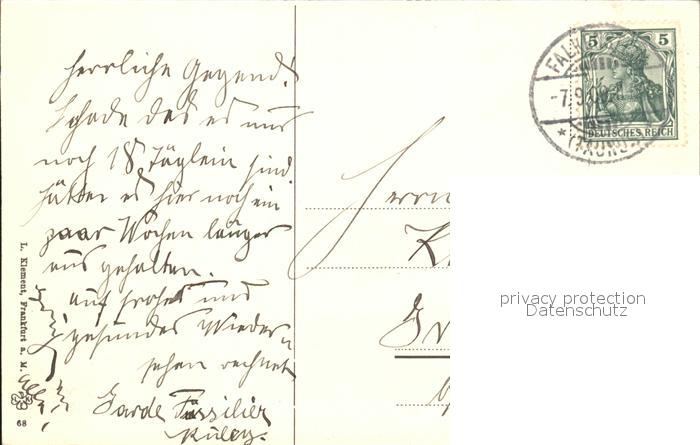 herrliche Gegend!
Schade das es nur
noch 18 Täglein sind
hätten es hier noch ein
paar Wochen länger
aus gehalten.
auf frohes und
gesundes Wieder
sehen rechnet
Garde Füssilier
L. Klement, Frankfurt a. M.
68
Herrn
5 5
DEUTSCHES REICH
FALK
-7.9.
*(TAUNUS)
privacy protection
Datenschutz